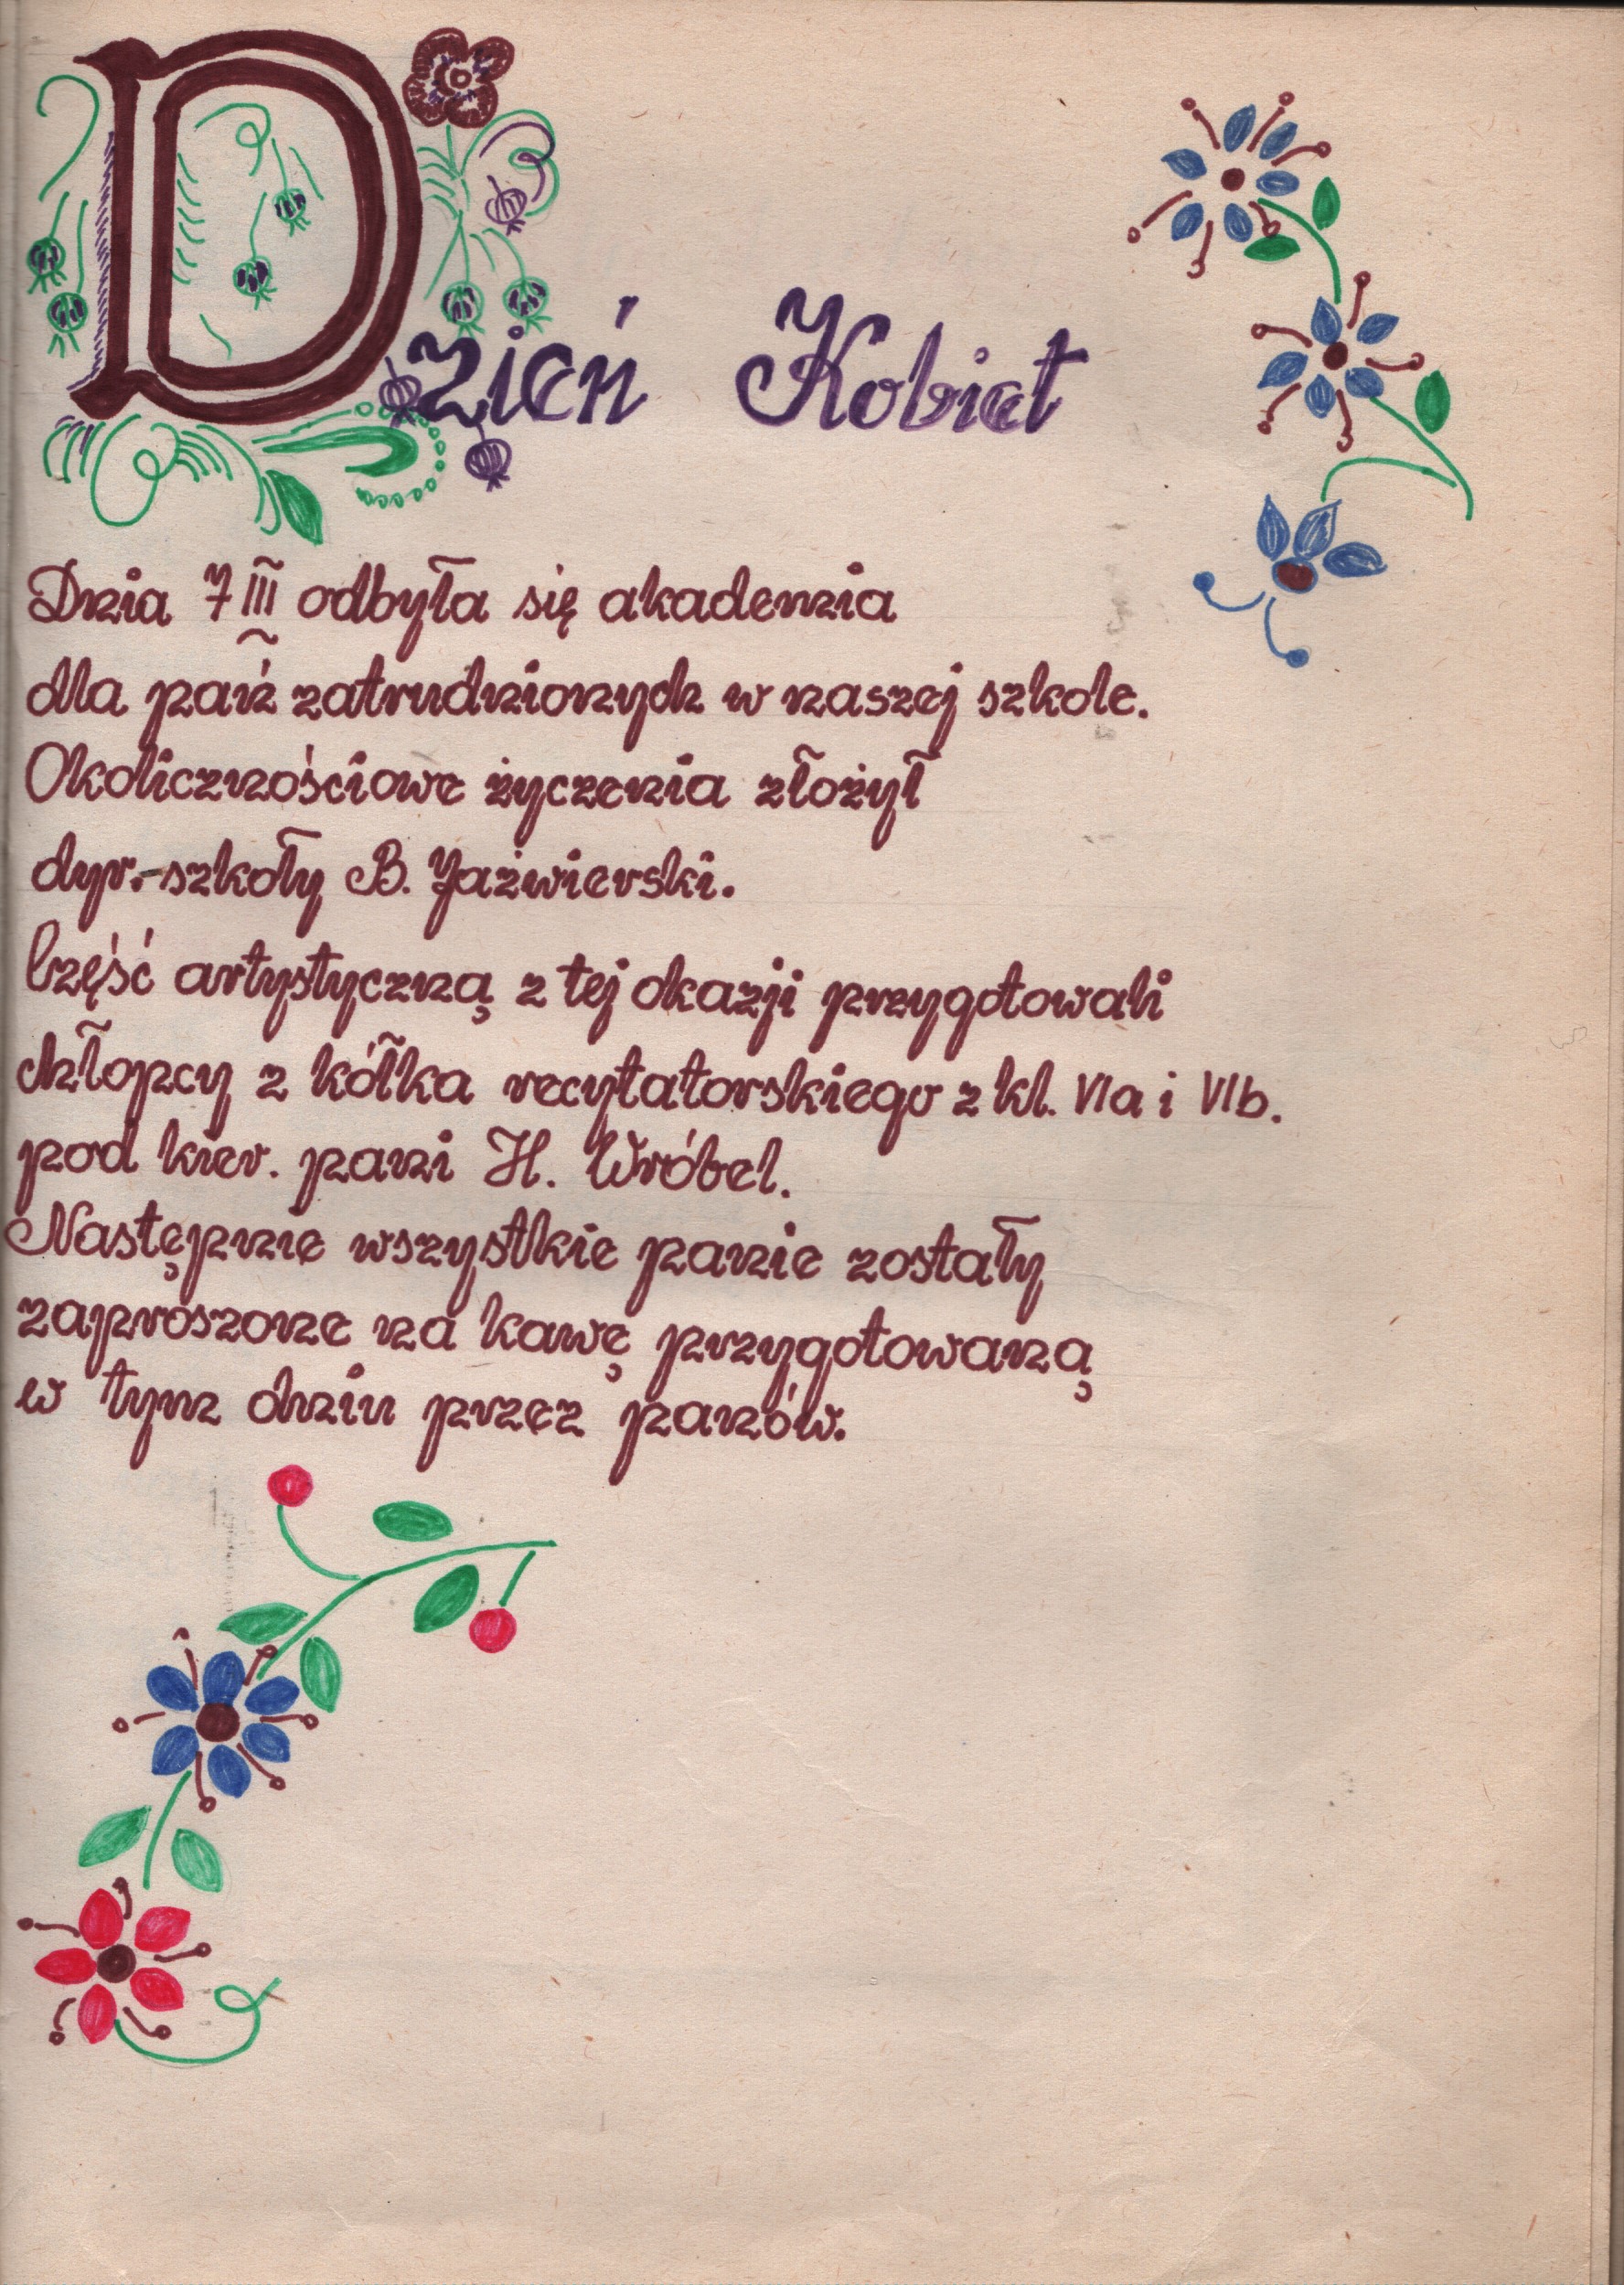 Dzień Kobiet
Dnia 7 III odbyła się akademia
dla pań zatrudnionych w naszej szkole.
Okolicznościowe życzenia złożył
dyr. szkoły B. Jaźwierski.
Część artystyczną z tej okazji przygotowali
chłopcy z kółka recytatorskiego z kl. VIa i VIb.
pod kier. pani H. Wróbel.
Następnie wszystkie panie zostały
zaproszone na kawę przygotowaną
w tym dniu przez panów.